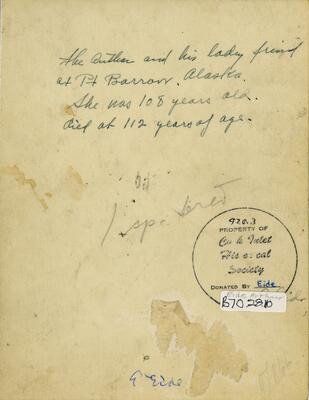 The Author and his lady friend
at Pt Barrow, Alaska.
She was 108 years old.
Died at 112 years of age.
1 sp.
920.3
PROPERTY OF
Cook Inlet
Historical
Society
DONATED BY Eide
B70.28.10
Eide